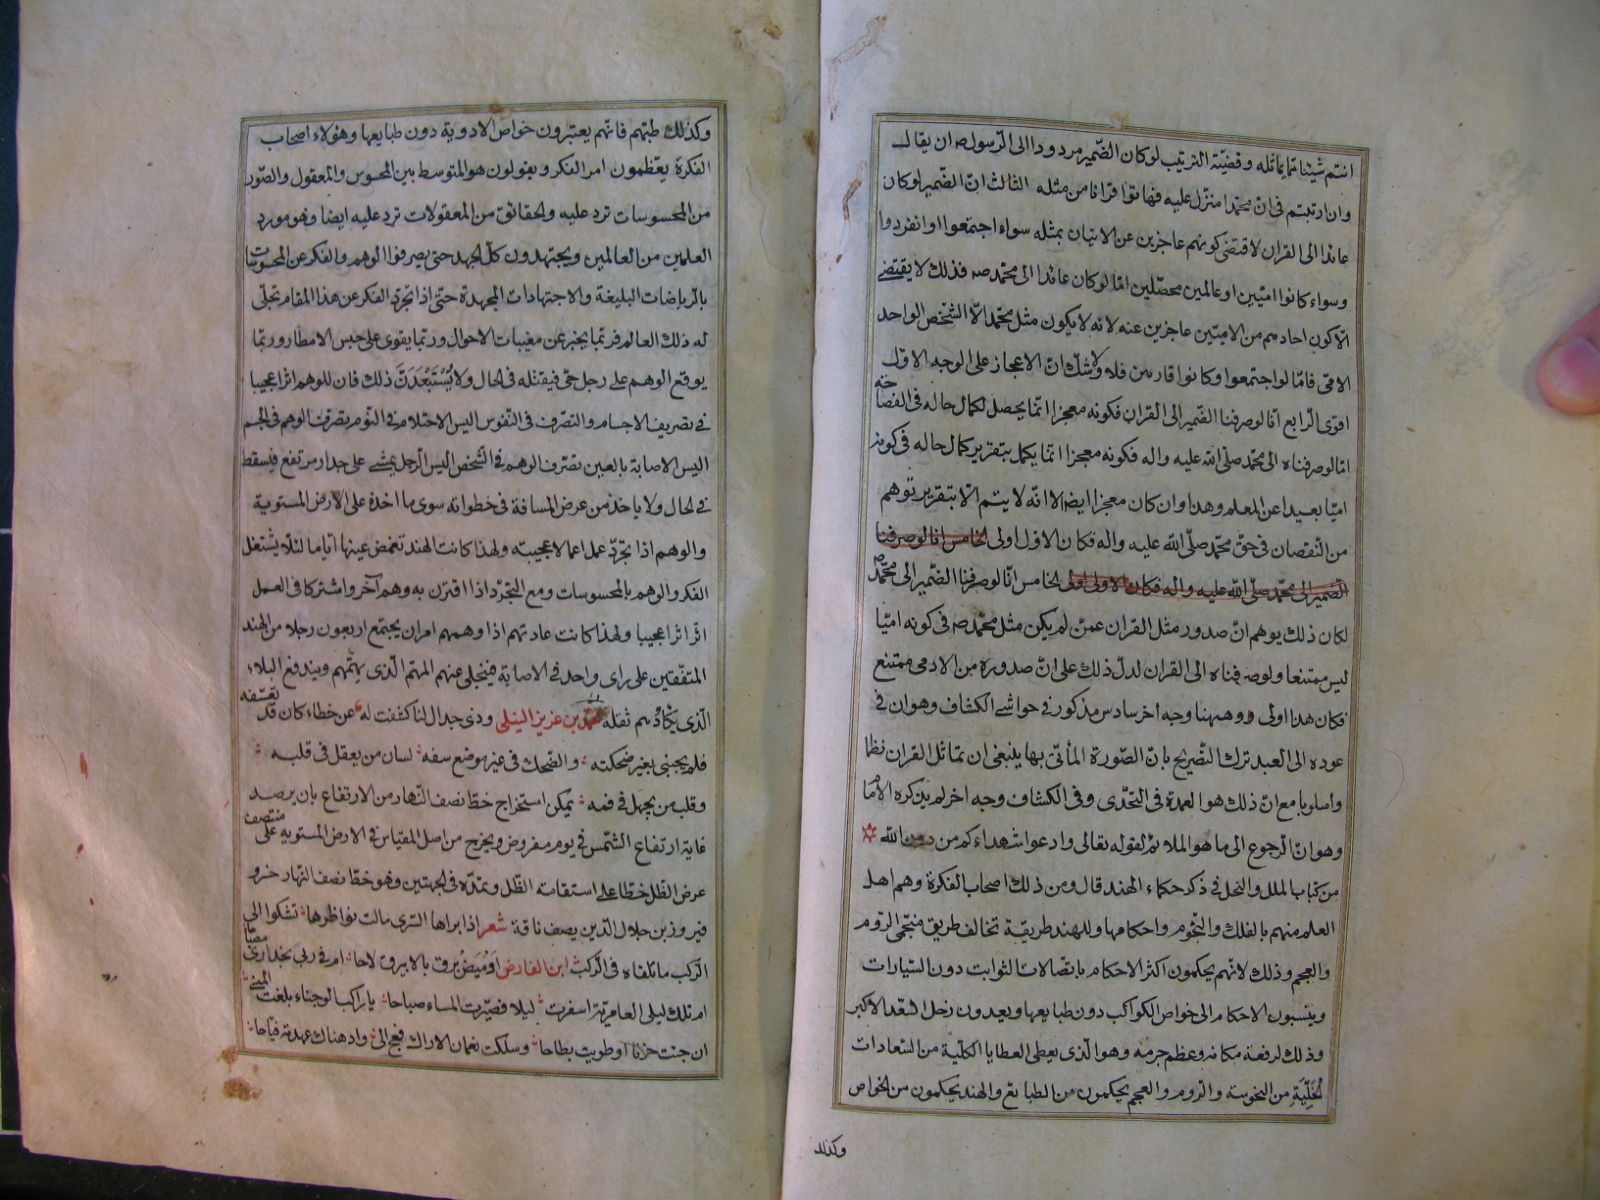 انتم شيئا مما يماثله وقضية الترتيب لو كان الضمير مردودا الى الرسول صه ان يقال
وان ارتبتم فى ان محمدا منزل عليه فهاتوا قرانا من مثله الثالث ان الضمير لو كان
عائدا الى القران لاقتضى كونهم عاجزين عن الاتيان بمثله سواء اجتمعوا او انفردوا
وسواء كانوا اميين او عالمين محصلين اما لو كان عائدا الى محمد صه فذلك لا يقتضى
الا كون احادهم من الاميين عاجزين عنه لانه لا يكون مثل محمد الا الشخص الواحد
الامى فاما لو اجتمعوا وكانوا قارئين فلا ولا شك ان الاعجاز على الوجه الاول
اقوى الرابع انا لو صرفنا الضمير الى القران فكونه معجزا انما يحصل لكمال حاله فى الفصاحة
اما لو صرفناه الى محمد صلى الله عليه واله فكونه معجزا انما يكمل بتقرير كمال حاله فى كونه
اميا بعيدا عن المعلم وهذا وان كان معجزا ايضا الا انه لا يتم الا بتقرير توهم
من النقصان فى حق محمد صلى الله عليه واله فكان الاول اولى الخامس انا لو صرفنا
الضمير الى محمد صلى الله عليه واله فكان الاولى اولى الخامس انا لو صرفنا الضمير الى محمد صه
لكان ذلك يوهم ان صدور مثل القران عمن لم يكن مثل محمد صه فى كونه اميا
ليس ممتنعا ولو صرفناه الى القران لدل ذلك على ان صدوره من الادمى ممتنع
فكان هذا اولى وههنا وجه اخر سادس مذكور فى حواشى الكشاف وهو ان فى
عوده الى العبد ترك التصريح بان الصورة المأتى بها ينبغى ان تماثل القران نظما
واسلوبا مع ان ذلك هو العمدة فى التحدى وفى الكشاف وجه اخر لم يذكره الامام
وهو ان الرجوع الى ما هو الملائم لقوله تعالى وادعوا شهداءكم من دون الله
من كتاب الملل والنحل فى ذكر حكماء الهند قال ومن ذلك اصحاب الفكرة وهم اهل
العلم منهم بالفلك والنجوم واحكامها وللهند طريقة تخالف طريق منجمى الروم
والعجم وذلك لانهم يحكمون اكثر الاحكام باتصالات الثوابت دون السيارات
وينسبون الاحكام الى خواص الكواكب دون طبايعها ويعدون زحل السعد الاكبر
وذلك لرفعة مكانه وعظم جرمه وهو الذى يعطى العطايا الكلية من السعادات
الخلية من النحوسة والروم والعجم يحكمون من الطبائع والهند يحكمون من الخواص
وكذلك
وكذلك طبهم فانهم يعتبرون خواص الادوية دون طبايعها وهؤلاء اصحاب
الفكرة يعظمون امر الفكر ويقولون هو المتوسط بين المحسوس والمعقول والصور
من المحسوسات ترد عليه والحقائق من المعقولات ترد عليه ايضا وهو مورد
العلمين من العالمين ويجتهدون كل الجهد حتى يصرفوا الوهم والفكر عن المحسوسات
بالرياضات البليغة والاجتهادات المجهدة حتى اذا تجرد الفكر عن هذا المقام تجلى
له ذلك العالم فربما يخبر عن مغيبات الاحوال وربما يقوى على حبس الامطار وربما
يوقع الوهم على رجل حى فيقتله فى الحال ولا يُسْتَبْعَدَنَّ ذلك فان للوهم اثرا عجيبا
فى تصريف الاجسام والتصرف فى النفوس اليس الاحتلام فى النوم تصرف الوهم فى الجسم
اليس الاصابة بالعين تصرف الوهم فى الشخص اليس الرجل يمشى على جدار مرتفع فيسقط
فى الحال ولا ياخذ من عرض المسافة فى خطواته سوى ما اخذه على الارض المستوية
والوهم اذا تجرد عمل اعمالا عجيبة ولهذا كانت الهند تغمض عينها اياما لئلا يشتغل
الفكر والوهم بالمحسوسات ومع التجرد اذا اقترن به وهم آخر واشتركا فى العمل
اثر اثرا عجيبا ولهذا كانت عادتهم اذا وهمهم امر ان يجتمع اربعون رجلا من الهند
المتفقين على راى واحد فى الاصابة فينجلى عنهم المهم الذى يهمهم ويندفع البلاء
الذى يكادهم ثقله محمد بن عزيز النيلى وذى جدال لنا كشفت له عن خطاء كان قد تعسفه
فلم يجبنى بغير ضحكته والضحك فى غير موضع سفه لسان من يعقل فى قلبه
وقلب من يجهل فى فمه يمكن استخراج خط نصف النهار من الارتفاع بان يرصد
غاية ارتفاع الشمس فى يوم مفروض ويخرج من اصل المقياس فى الارض المستوية على منتصف
عرض الظل خطا على استقامة الظل وتمده فى الجهتين وهو خط نصف النهار خسرو
فيروز بن جلال الدين يصف ناقة شعر اذا براها السرى مالت نواظرها تشكوا الى
الركب ما تلقاه فى الركب ابن الفارض اوميض برق بالابيرق لاحا ام فى ربى نجد ارى مصباحا
ام تلك ليلى العامرية اسفرت ليلا فصيرت المساء صباحا يا راكب الوجناء بلغت المنى
ان جئت حزنا او طويت بطاحا وسلكت نعمان الاراك فعج الى واد هناك عهدته فياحا